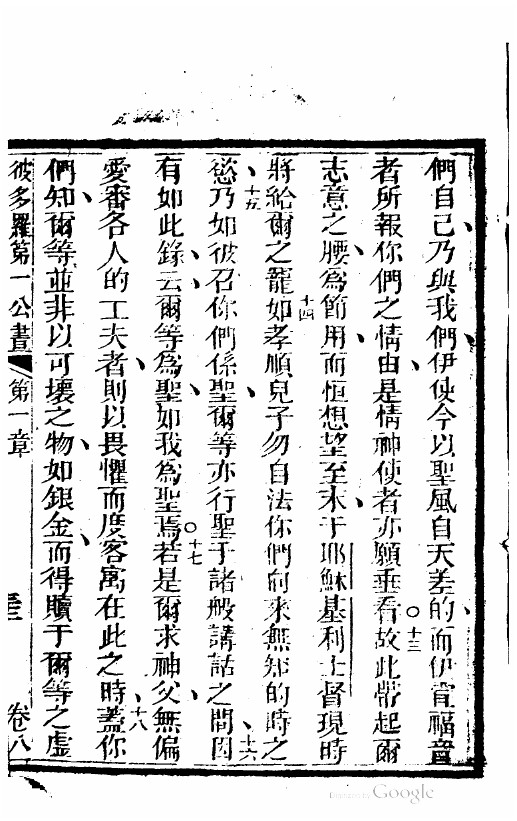 們自己乃與我們伊使今以聖風自天差的而伊宣福音
者所報你們之情由是情神使者亦願垂看○十三故此帶起爾
志意之腰為節用而恒想望至末于耶穌基利士督現時
將給爾之寵十四如孝順兒子勿自法你們向來無知的時之
慾十五乃如彼召你們係聖爾等亦行聖于諸般講話之間十六因
有如此錄云爾等為聖如我為聖焉○十七若是爾求神父無偏
愛審各人的工夫者則以畏懼而度客寓在此之時十八蓋你
們知爾等並非以可壞之物如銀金而得贖于爾等之虛
彼多羅第一公書 第一章 三 卷八
Google